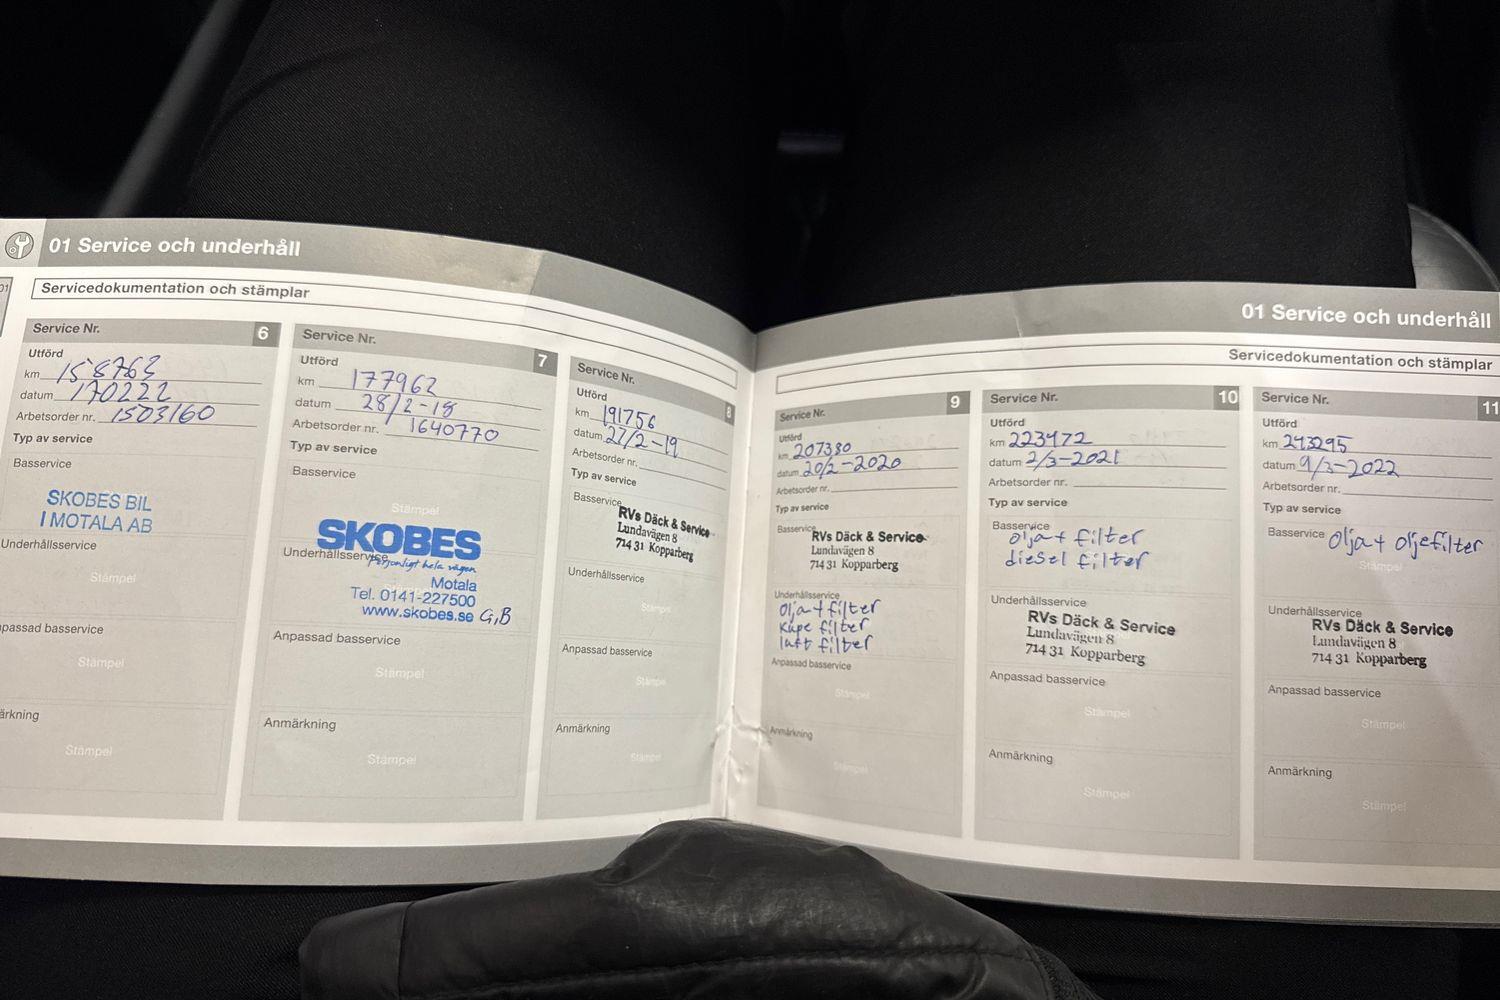 01 Service och underhåll
Servicedokumentation och stämplar
01
Service Nr. 6
Utförd
km 158763
datum 170222
Arbetsorder nr. 1503160
Typ av service
Basservice
SKOBES BIL
I MOTALA AB
Underhållsservice
Stämpel
npassad basservice
Stämpel
ärkning
Stämpel
Service Nr. 7
Utförd
km 177962
datum 28/2-18
Arbetsorder nr. 1640770
Typ av service
Basservice
Stämpel
SKOBES
Underhållsservice
Personligt hela vägen
Motala
Tel. 0141-227500
www.skobes.se G,B
Anpassad basservice
Stämpel
Anmärkning
Stämpel
Service Nr. 8
Utförd
km 191756
datum 27/2-19
Arbetsorder nr.
Typ av service
Basservice
RVs Däck & Service
Lundavägen 8
714 31 Kopparberg
Underhållsservice
Stämpel
Anpassad basservice
Stämpel
Anmärkning
Stämpel
01 Service och underhåll
Servicedokumentation och stämplar
Service Nr. 9
Utförd
km 207380
datum 20/2-2020
Arbetsorder nr.
Typ av service
Basservice
RVs Däck & Service
Lundavägen 8
714 31 Kopparberg
Underhållsservice
olja+filter
kupe filter
luft filter
Anpassad basservice
Stämpel
Anmärkning
Stämpel
Service Nr. 10
Utförd
km 223472
datum 2/3-2021
Arbetsorder nr.
Typ av service
Basservice
olja+ filter
diesel filter
Underhållsservice
RVs Däck & Service
Lundavägen 8
714 31 Kopparberg
Anpassad basservice
Stämpel
Anmärkning
Stämpel
Service Nr. 11
Utförd
km 243295
datum 9/3-2022
Arbetsorder nr.
Typ av service
Basservice olja+ oljefilter
Stämpel
Underhållsservice
RVs Däck & Service
Lundavägen 8
714 31 Kopparberg
Anpassad basservice
Stämpel
Anmärkning
Stämpel